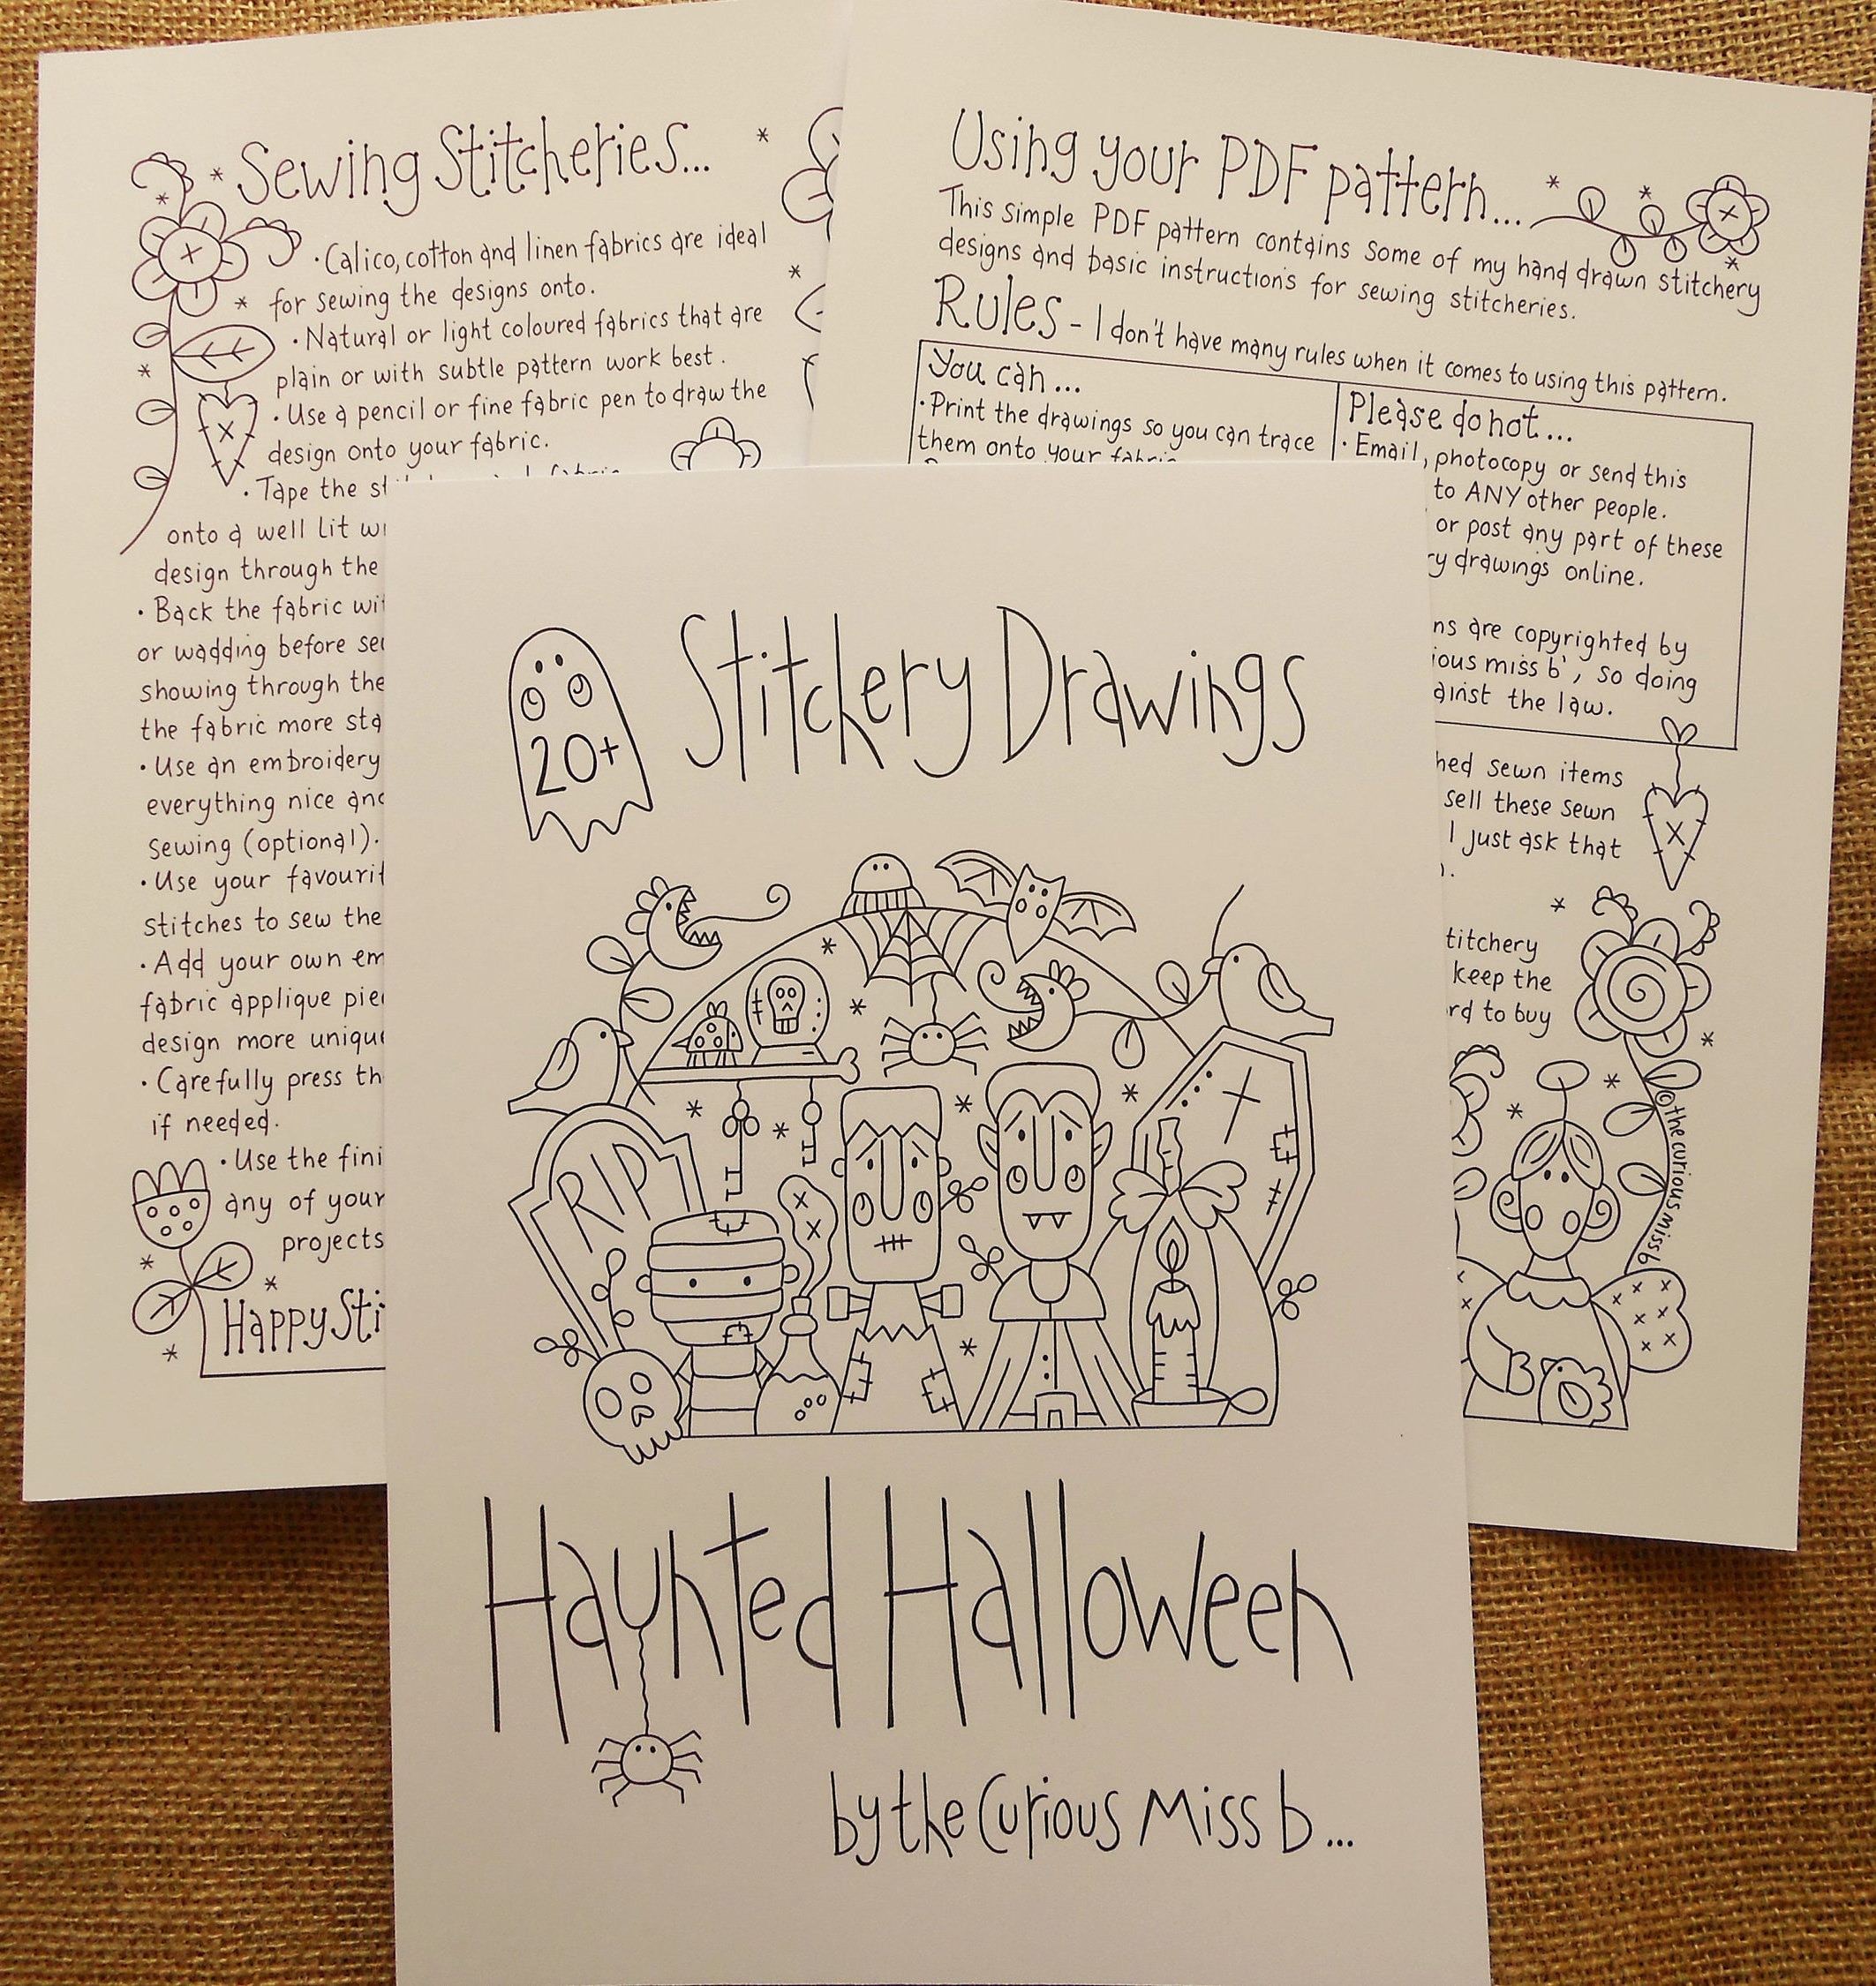 Sewing Stitcheries...
· Calico, cotton and linen fabrics are ideal
for sewing the designs onto.
· Natural or light coloured fabrics that are
plain or with subtle pattern work best.
· Use a pencil or fine fabric pen to draw the
design onto your fabric.
· Tape the
onto a well lit
design through the
· Back the fabric
or wadding before
showing through the
the fabric more
· Use an embroidery
everything nice
sewing (optional).
· Use your
stitches to sew the
· Add your own
fabric applique
design more
· Carefully press
if needed.
· Use the
any of your
projects
Happy
Using your PDF pattern...
This simple PDF pattern contains some of my hand drawn stitchery
designs and basic instructions for sewing stitcheries.
Rules - I don't have many rules when it comes to using this pattern.
You can...
· Print the drawings so you can trace
them onto your fabric
Please do not...
· Email, photocopy or send this
to ANY other people.
or post any part of these
drawings online.
are copyrighted by
miss b', so doing
the law.
sewn items
sell these sewn
I just ask that
keep the
to buy
©the curious miss b
20+
Stitchery Drawings
RIP
Haunted Halloween
by the Curious Miss b...